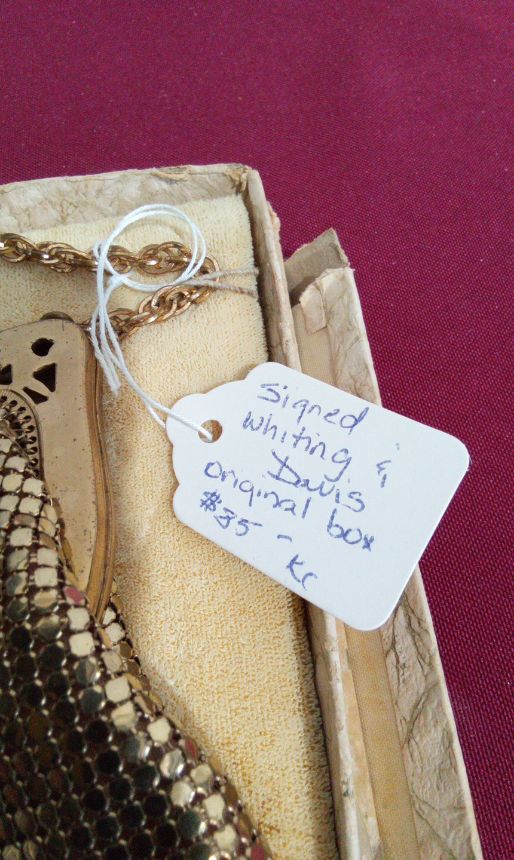 signed
whiting &
Davis
original box
$35 -
KC